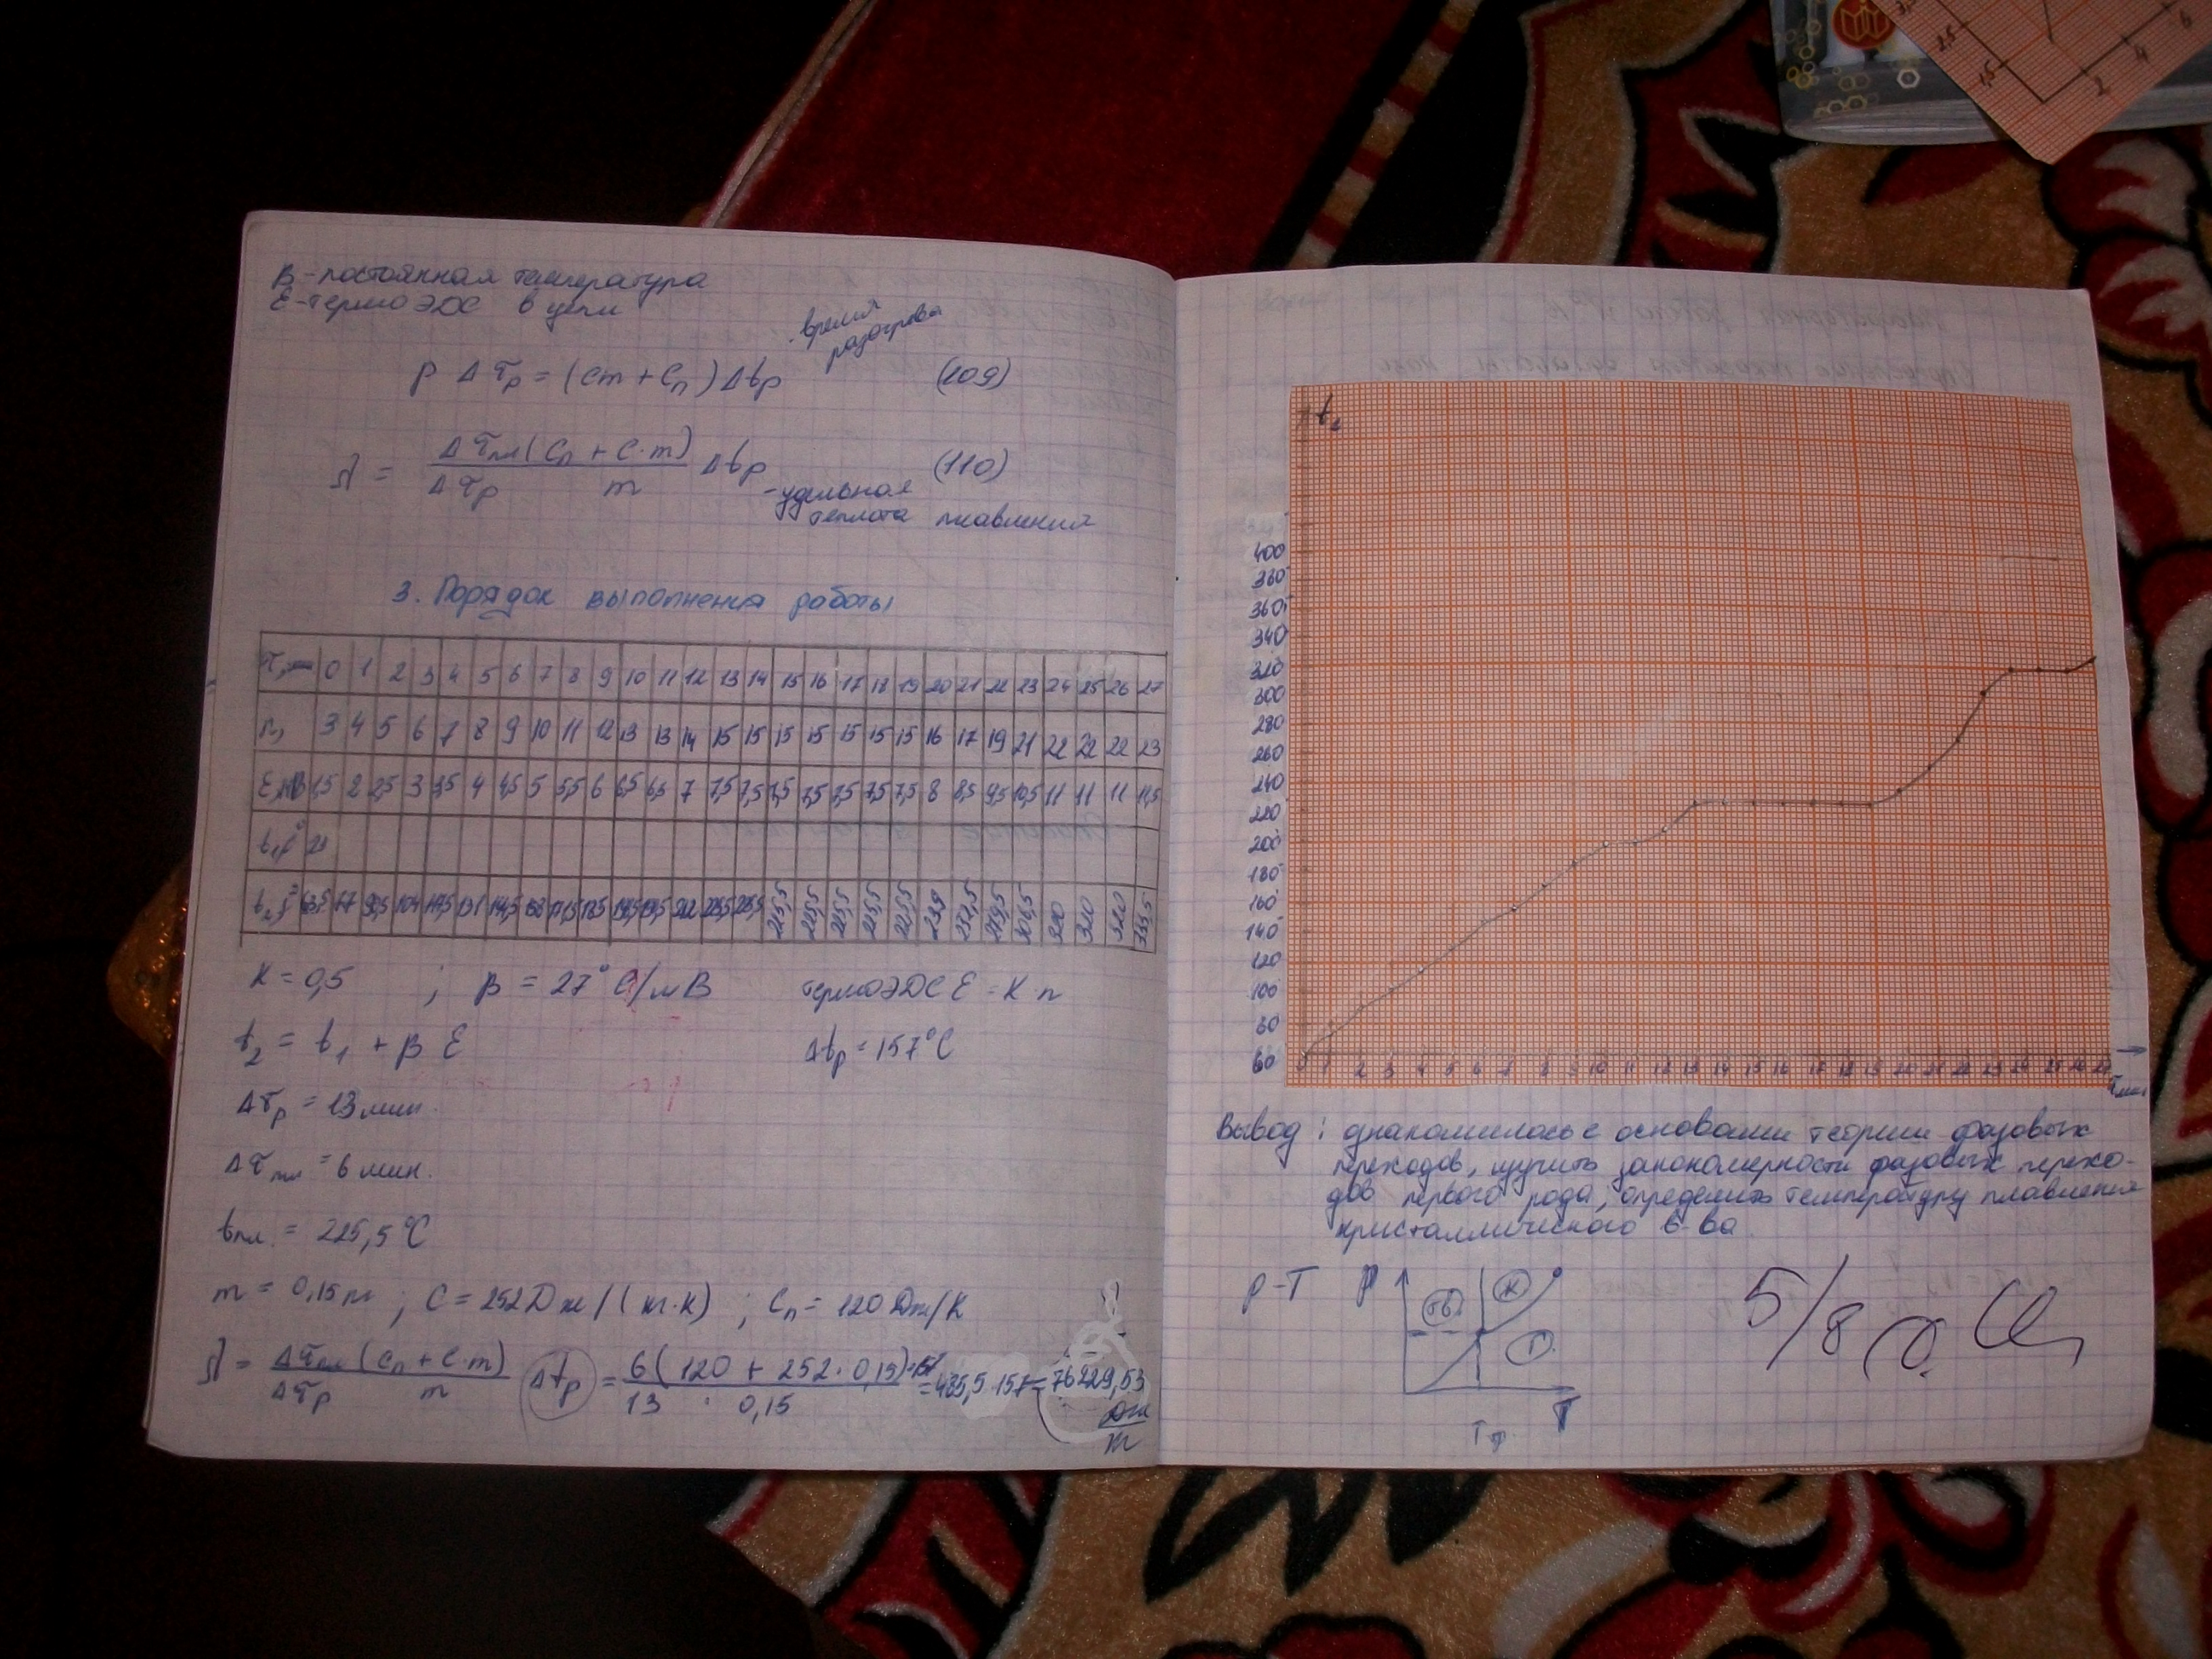 β - постоянная температура
ε - термо ЭДС в цепи
время
разогрева
P Δτр = (cm + Cп) Δtр (109)
λ = Δτпл (Cп + C·m) / Δτр m Δtр (110)
- удельная
теплота плавления
3. Порядок выполнения работы
τ, 0 1 2 3 4 5 6 7 8 9 10 11 12 13 14 15 16 17 18 19 20 21 22 23 24 25 26 27
n, 3 4 5 6 7 8 9 10 11 12 13 13 14 15 15 15 15 15 15 15 16 17 19 21 22 22 22 23
ε, мВ 1,5 2 2,5 3 3,5 4 4,5 5 5,5 6 6,5 6,5 7 7,5 7,5 7,5 7,5 7,5 7,5 7,5 8 8,5 9,5 10,5 11 11 11 11,5
t1, c° 23
t2, c° 63,5 77 90,5 104 117,5 131 144,5 158 171,5 185 198,5 198,5 212 225,5 225,5 225,5 225,5 225,5 225,5 225,5 239 252,5 279,5 306,5 320 320 320 333,5
K = 0,5 ; β = 27° C/мВ термоЭДС ε = K·n
t2 = t1 + β ε Δtр = 157°C
Δτр = 13 мин.
Δτпл = 6 мин.
tпл. = 225,5 °C
m = 0,15 кг ; C = 252 Дж/(кг·К) ; Cп = 120 Дж/К
λ = Δτпл (Cп + C·m) / Δτр m Δtр = 6 (120 + 252 · 0,15)·157 / 13 · 0,15 = 485,5 · 157 = 76229,53 Дж/кг
t2
400
380
360
340
320
300
280
260
240
220
200
180
160
140
120
100
80
60
0 1 2 3 4 5 6 7 8 9 10 11 12 13 14 15 16 17 18 19 20 21 22 23 24 25 26 27
τ, мин
Вывод: ознакомилась с основами теории фазовых
переходов, изучить закономерности фазовых перехо-
дов первого рода, определить температуру плавления
кристаллического в-ва.
P-T P
тв. ж
г.
T
Tф
5/8
25
1,5
2
4
6